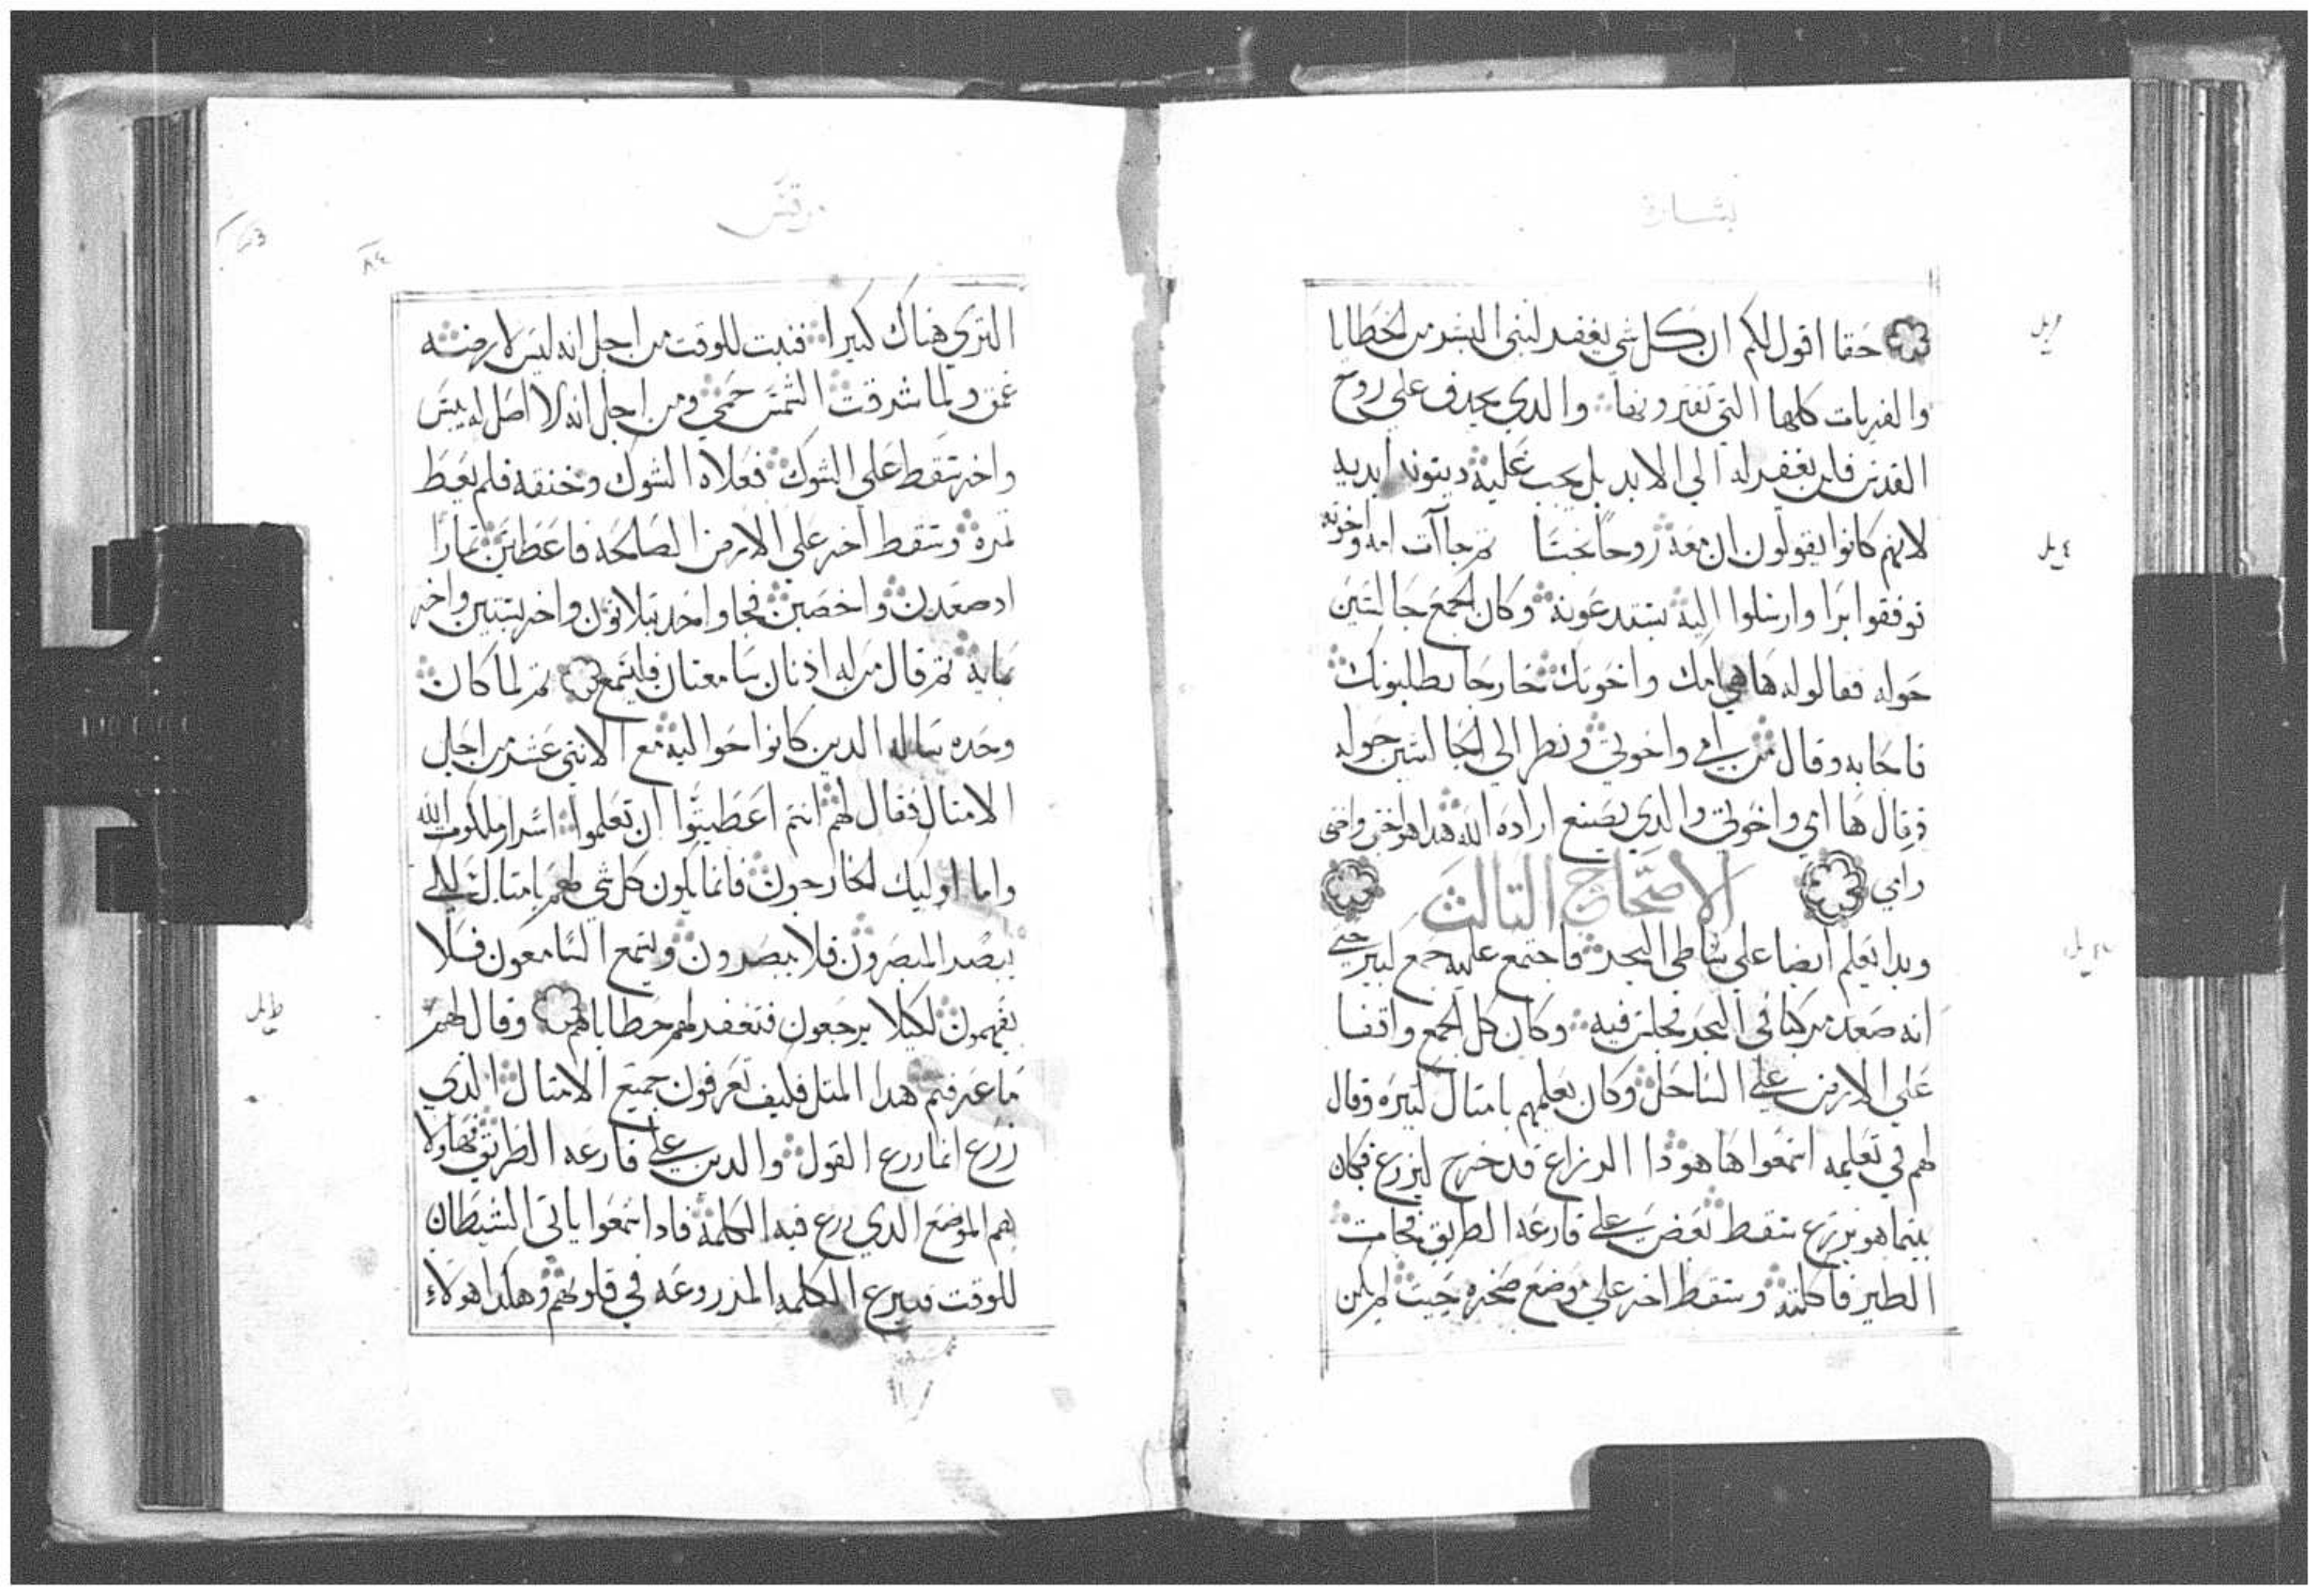 بشارة
حقا اقول لكم ان كل شي يغفر لبني البشر من الخطايا
والفريات كلها التي تفترونها والدي يجدف علي روح
القدس فلن يغفر له الي الابد بل يجب عليه دينونه ابديه
لانهم كانوا يقولون ان معه روحا نجسا ثم جاآت امه واخوته
فوقفوا برا وارسلوا اليه يستدعونه وكان الجمع جالسين
حوله فقالوا له ها هي امك واخوتك خارجا يطلبونك
فاجابهم وقال من امي واخوتي ونظر الي الجالسين حوله
وقال ها امي واخوتي والدي يصنع اراده الله هدا هو اخي واختي
وامي الاصحاح التالت
وبدا يعلم ايضا علي شاطي البحر فاجتمع عليه جمع كبير حتي
انه صعد مركبا في البحر فجلس فيه وكان كل الجمع واقفا
علي الارض علي الساحل وكان يعلمهم بامتال كتيره وقال
لهم في تعليمه اسمعوا ها هودا الزراع قد خرج ليزرع فكان
بينما هو يزرع سقط بعض علي قارعه الطريق فجات
الطير فاكلته وسقط اخر علي موضع صخره حيت لم يكن
مرقس
٨٤
التري هناك كتيرا فنبت للوقت من اجل انه ليس لارضه
عمق ولما شرقت الشمس حمي ومن اجل انه لا اصل له يبس
واخر سقط علي الشوك فعلاه الشوك وخنقه فلم يعط
تمره وسقط اخر علي الارض الصالحه فاعطي تمارا
اد صعدت واخصبت فجا واحد بتلاتون واخر بستين واخر
بمايه ثم قال من له اذنان سامعتان فليسمع ثم لما كان
وحده ساله الدين كانوا حواليه مع الاتني عشر من اجل
الامتال فقال لهم انتم اعطيتوا ان تعلموا اسرار ملكوت الله
واما اوليك الخارجون فانما يكون كل شي لهم بامتال لكي
يبصر المبصرون فلا يبصرون وليسمع السامعون فلا
يفهمون لكيلا يرجعون فتغفر لهم خطاياهم وقال لهم
ما عرفتم هدا المتل فكيف تعرفون جميع الامتال الذي
زرع انما زرع القول والدين علي قارعه الطريق فهاولا
هم الموضع الدي زرع فيه الكلمه فادا سمعوا ياتي الشيطان
للوقت فينزع الكلمه المزروعه في قلوبهم وهكدا هولاء